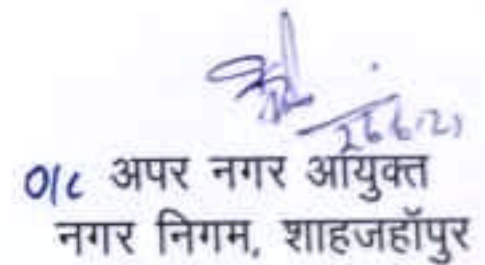 26.6.21
O/c अपर नगर आयुक्त
नगर निगम, शाहजहॉपुर